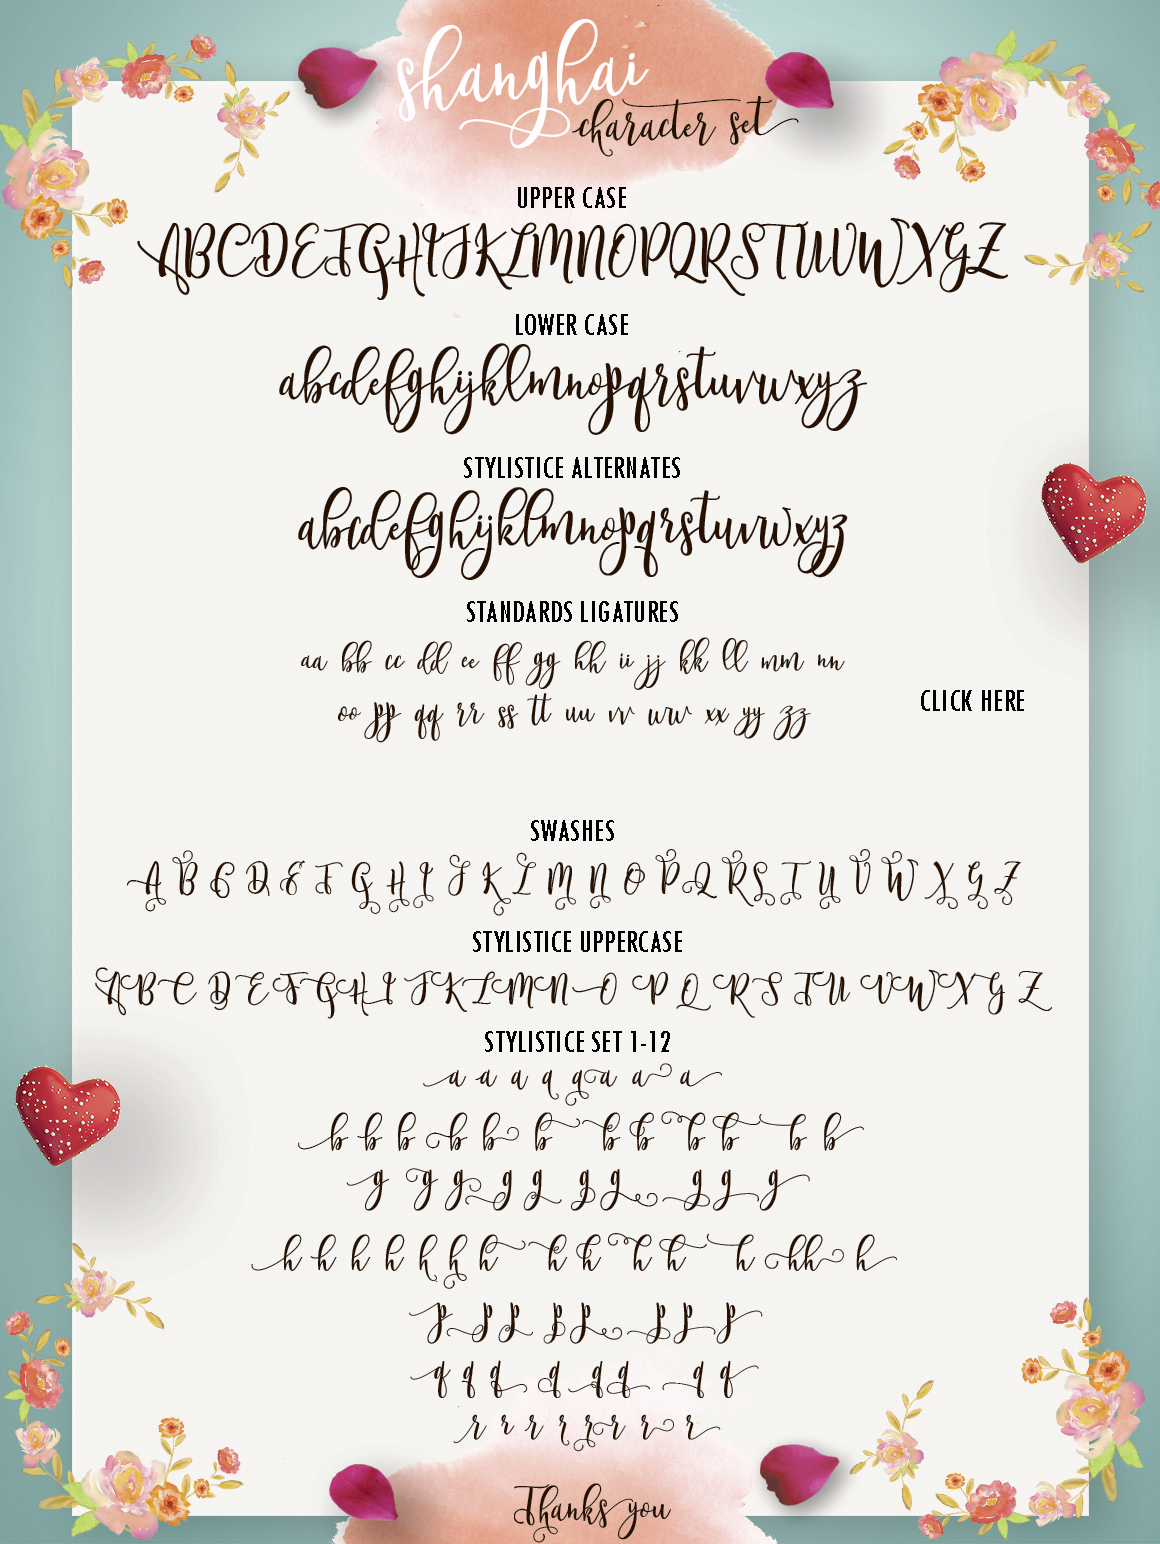 shanghai
character set
UPPER CASE
ABCDEFGHIJKLMNOPQRSTUVWXYZ
LOWER CASE
abcdefghijklmnopqrstuvwxyz
STYLISTICE ALTERNATES
abcdefghijklmnopqrstuvwxyz
STANDARDS LIGATURES
aa bb cc dd ee ff gg hh ii jj kk ll mm nn
oo pp qq rr ss tt uu vv ww xx yy zz
CLICK HERE
SWASHES
A B C D E F G H I J K L M N O P Q R S T U V W X Y Z
STYLISTICE UPPERCASE
A B C D E F G H I J K L M N O P Q R S T U V W X Y Z
STYLISTICE SET 1-12
a a a a a a a a
b b b b b b b b b b b b
g g g g g g g g g g
h h h h h h h h h h h h h h h
p p p p p p p p
q q q q q q q q
r r r r r r r r
Thanks you